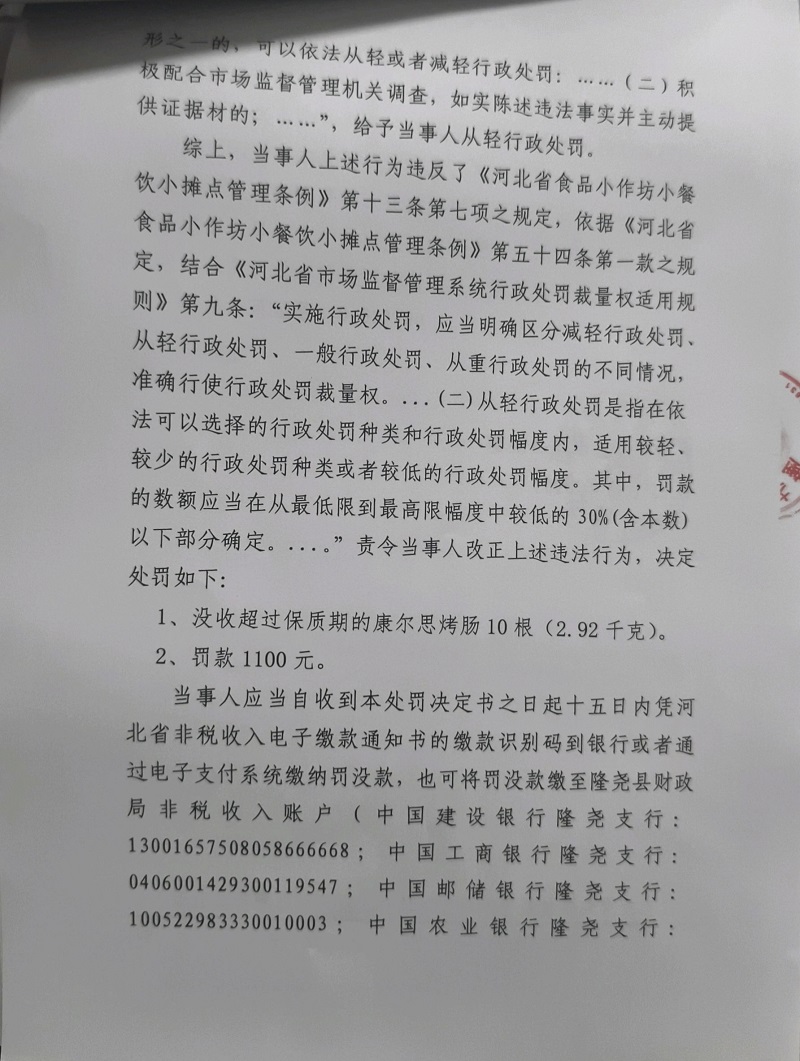 形之一的，可以依法从轻或者减轻行政处罚：……（二）积
极配合市场监督管理机关调查，如实陈述违法事实并主动提
供证据材的；……”，给予当事人从轻行政处罚。
综上，当事人上述行为违反了《河北省食品小作坊小餐
饮小摊点管理条例》第十三条第七项之规定，依据《河北省
食品小作坊小餐饮小摊点管理条例》第五十四条第一款之规
定，结合《河北省市场监督管理系统行政处罚裁量权适用规
则》第九条：“实施行政处罚，应当明确区分减轻行政处罚、
从轻行政处罚、一般行政处罚、从重行政处罚的不同情况，
准确行使行政处罚裁量权。...(二)从轻行政处罚是指在依
法可以选择的行政处罚种类和行政处罚幅度内，适用较轻、
较少的行政处罚种类或者较低的行政处罚幅度。其中，罚款
的数额应当在从最低限到最高限幅度中较低的 30%(含本数)
以下部分确定。....。”责令当事人改正上述违法行为，决定
处罚如下：
1、没收超过保质期的康尔思烤肠 10 根（2.92 千克）。
2、罚款 1100 元。
当事人应当自收到本处罚决定书之日起十五日内凭河
北省非税收入电子缴款通知书的缴款识别码到银行或者通
过电子支付系统缴纳罚没款，也可将罚没款缴至隆尧县财政
局非税收入账户（中国建设银行隆尧支行：
13001657508058666668；中国工商银行隆尧支行：
0406001429300119547；中国邮储银行隆尧支行：
100522983330010003；中国农业银行隆尧支行：